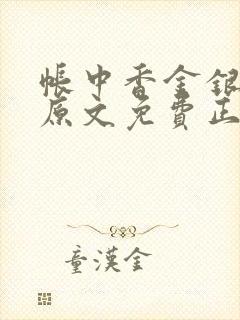 帳中香金銀
原文免費正
童漢金